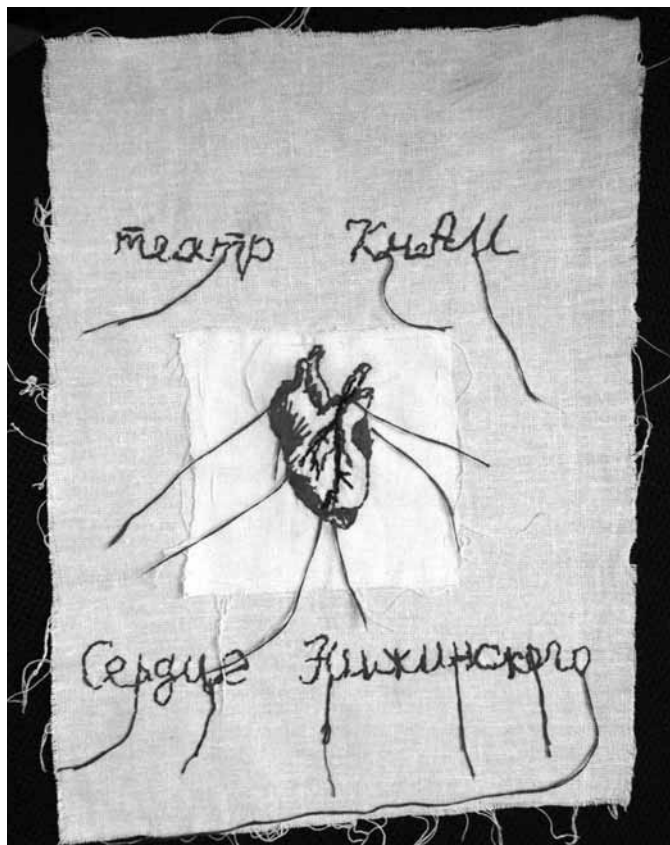 театр КнАМ
Сердце Нижинского